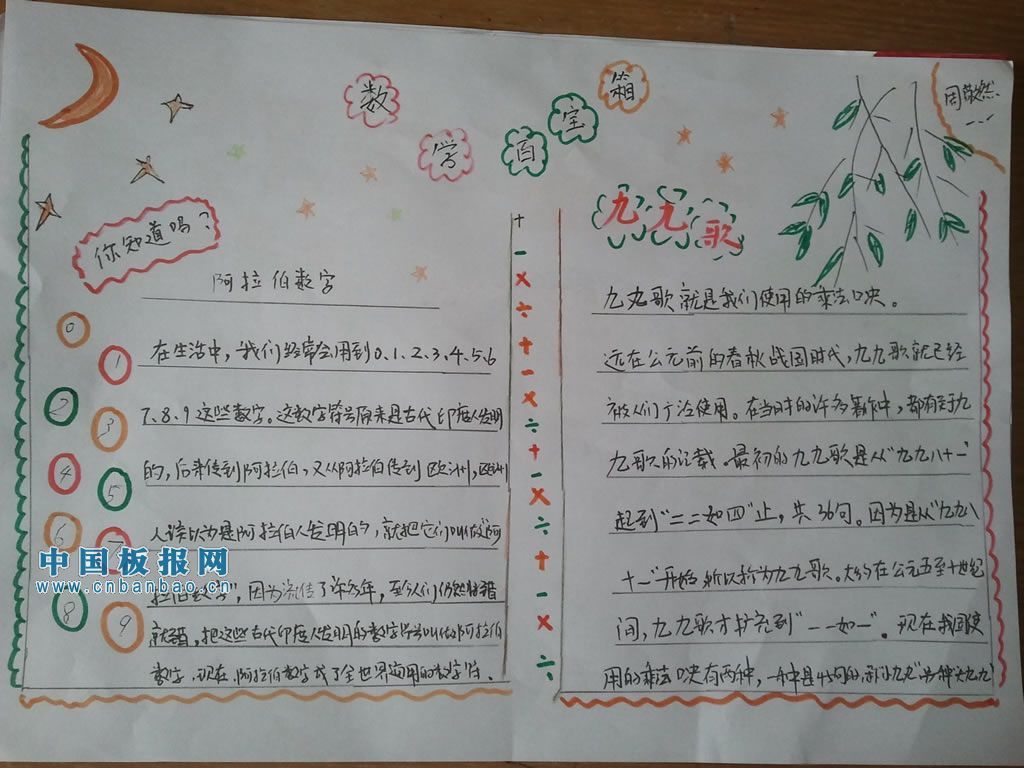 数学百宝箱
周敬然
你知道吗？
阿拉伯数字
0
1
2
3
4
5
6
7
8
9
在生活中，我们经常会用到0、1、2、3、4、5、6
7、8、9这些数字。这数字符号原来是古代印度人发明
的，后来传到阿拉伯，又从阿拉伯传到欧洲，欧洲
人误以为是阿拉伯人发明的，就把它们叫做"阿
拉伯数字"，因为流传了许多年，至今人们仍然将错
就错，把这些古代印度人发明的数字符号叫做阿拉伯
数字，现在，阿拉伯数字成了全世界通用的数字符。
+
-
×
÷
+
-
×
÷
+
-
×
÷
+
-
×
÷
九九歌
九九歌就是我们使用的乘法口决。
远在公元前的春秋战国时代，九九歌就已经
被人们广泛使用。在当时的许多著作中，都有对九
九歌的记载。最初的九九歌是从"九九八十一"
起到"二二如四"止，共36句。因为是从"九九八
十一"开始所以称为九九歌。大约在公元五至十世纪
间，九九歌才扩充到"一一如一"。现在我国使
用的乘法口决有两种，一种是45句的，称"小九九"另一种"大九九"
中国板报网
www.cnbanbao.cn